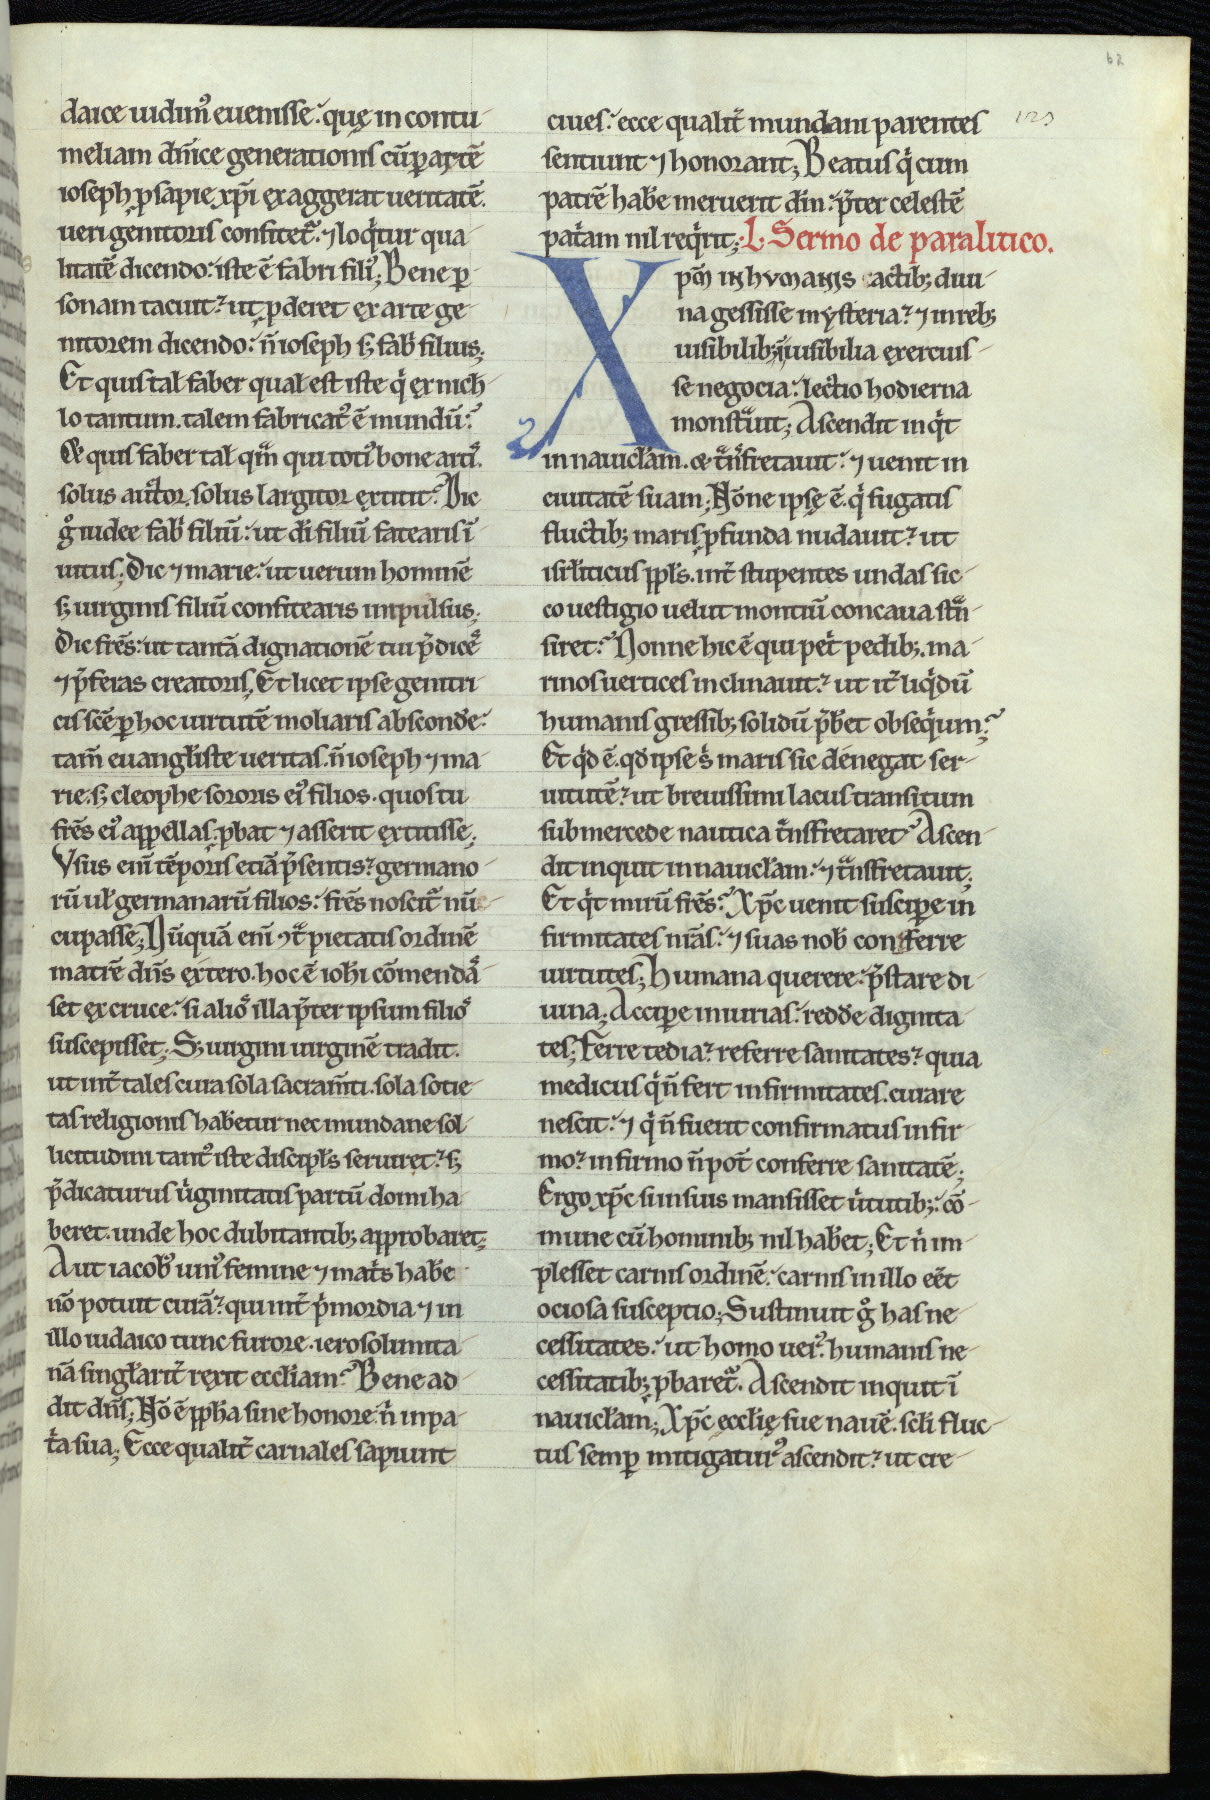 62
daice uidim᷒ euenisse. quę in contu-
meliam dn̄ice generationis cū ꝑ artē
ioseph, ꝓsapie xp̄i exaggerat ueritatē.
ueri genitoris confitet᷑. ⁊ loqͥtur qua-
litatē dicendo: iste ē fabri fili᷒; Bene ꝑ-
sonam tacuit: ut ꝓderet ex arte ge-
nitorem dicendo: n̄ ioseph sꝫ fab̄ filius;
Et quis tal̄ faber qual̄ est iste qͥ ex nich-
lo tantum. talem fabricat᷒ ē mundū?
& quis faber tal̄ qm̄ qui toti᷒ bone arti᷒.
solus auctor, solus largitor extitit? Dic
gͦ iudee fab̄ filiū: ut di filiū fatearis ī-
uitus; Dic ⁊ marie: ut uerum hominē
sꝫ uirginis filiū confitearis impulsus;
Dic fr̄es: ut tantā dignationē tui p̄dicē᷒
⁊ p̄feras creatoris; Et licet ipse genitri-
cis sc̄e ꝑ hoc uirtutē moliaris absconde᷑:
tam̄ euangl̄iste ueritas. n̄ ioseph ⁊ ma-
rie. sꝫ cleophe sororis ei᷒ filios. quos tu
fr̄es ei᷒ appellas. ꝓbat ⁊ asserit extitisse;
Vsus enī tēporis etiā p̄sentis: germano-
rū ul̄ germanarū filios: fr̄es noscit᷑ nū-
cupasse; Nūquā enī ꝯtͣ pietatis ordinē
matrē dn̄s extero. hoc ē ioh̄i cōmendas-
set ex cruce: si alios illa p̄ter ipsum filios
suscepisset; Sꝫ uirgini uirginē tradit.
ut int̄ tales cura sola sacram̄ti. sola socie-
tas religionis habetur nec mundane sol-
licitudini tant᷒ iste discipl̄s seruiret: sꝫ
p̄dicaturus uͥginitatis partū domi ha-
beret. unde hoc dubitantibꝫ approbaret;
Aut iacob᷒ uni᷒ femine ⁊ matͥs habe᷑
nō potuit curā: qui int̄ pͥmordia ⁊ in
illo iudaico tunc furore. ierosolimita-
nā singl̄arit̄ rexit eccl̄iam? Bene ad-
dit dn̄s; Nō ē ppha sine honore. n̄ in pa-
tͥa sua; Ecce qualit̄ carnales sapiunt
ciues: ecce qualit̄ mundani parentes
sentiunt ⁊ honorant; Beatus qͥ cum
patrē habe᷑ meruerit dm̄: p̄ter celestē
patͥam nil reqͥrit; L. Sermo de paralitico.
Xpm̄ in hvmanis actibꝫ diui-
na gessisse mysteria: ⁊ in rebꝫ
uisibilibꝫ inuisibilia exercuis-
se negocia: lectio hodierna
monstͣuit; Ascendit inqͥt
in nauicl̄am. & tͣnfretauit: ⁊ uenit in
ciuitatē suam; Nōne ipse ē. qͥ fugatis
fluctibꝫ maris ꝓfunda nudauit: ut
isrl̄iticus ppl̄s. int̄ stupentes undas sic-
co uestigio uelut montiū concaua tͣn-
siret? Nonne hic ē qui pet̄ pedibꝫ. ma-
rinos uertices inclinauit: ut it̄ liqͥdū
humanis gressibꝫ solidū p̄bet obseqͥum?
Et qͥd ē. qd̄ ipse sͥ maris sic denegat ser-
uitutē: ut breuissimi lacus transitum
sub mercede nautica tͣnsfretaret? Ascen-
dit inquit in nauicl̄am: ⁊ tͣnsfretauit;
Et qͥt mirū fr̄es? Xp̄c uenit suscipe᷑ in-
firmitates nr̄as: ⁊ suas nob̄ conferre
uirtutes; Humana querere: p̄stare di-
uina; Accipe᷑ iniurias: redde᷑ dignita-
tes; Ferre tedia: referre sanitates: quia
medicus qͥ n̄ fert infirmitates. curare
nescit: ⁊ qͥ n̄ fuerit confirmatus infir-
mo: infirmo n̄ pot̄ conferre sanitatē;
Ergo xp̄c si in suis mansisset uͥtutibꝫ: cō-
mune cū hominibꝫ nil haberet; Et n̄ im-
plesset carnis ordinē: carnis in illo eēt
ociosa susceptio; Sustinuit gͦ has ne-
cessitates: ut homo uer᷒: humanis ne-
cessitatibꝫ ꝓbaret᷑. Ascendit inquit ī
nauicl̄am; Xp̄c ęccl̄ię sue nauē. scl̄i fluc-
tus semꝑ mitigatur᷒ ascendit: ut cre-